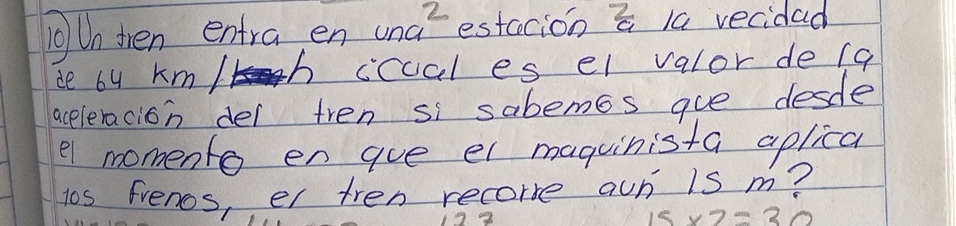 10) Un tren entra en una estación a la vecidad
de 64 km/h ¿cual es el valor de la
aceleración del tren si sabemos que desde
el momento en que el maquinista aplica
los frenos, el tren recorre aun 15 m?
15 x 2 = 30